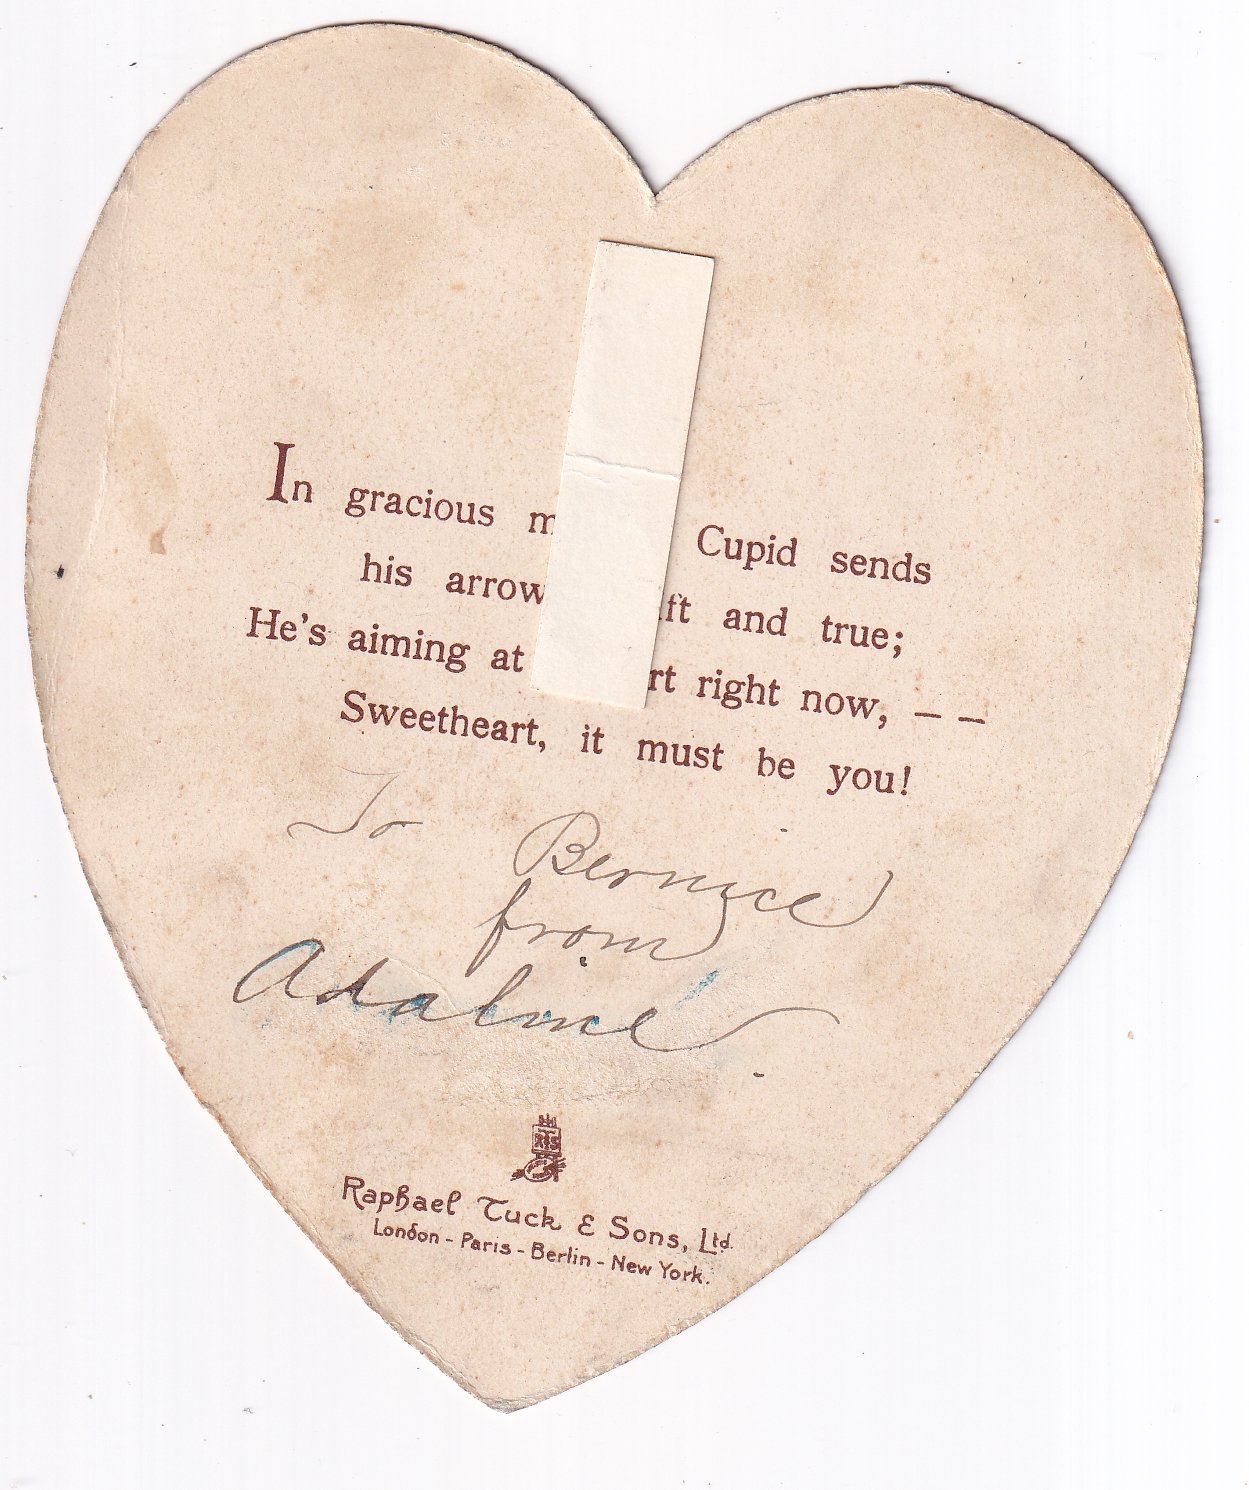 In gracious m Cupid sends
his arrow ift and true;
He's aiming at rt right now, — —
Sweetheart, it must be you!
To Bernice
from
Adaline
R T S
Raphael Tuck & Sons, Ltd.
London - Paris - Berlin - New York.